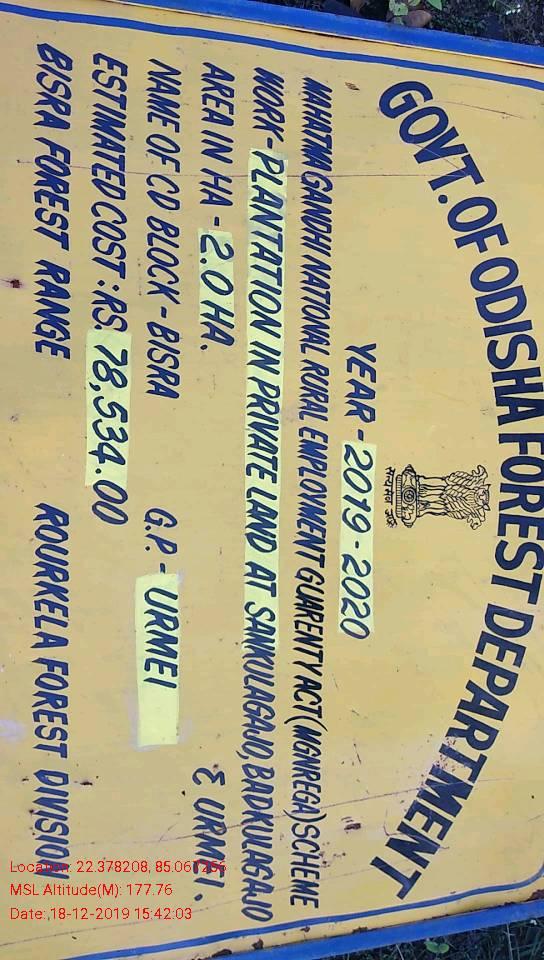 GOVT. OF ODISHA FOREST DEPARTMENT
सत्यमेव जयते
YEAR - 2019 - 2020
MAHATMA GANDHI NATIONAL RURAL EMPLOYMENT GUARENTY ACT (MGNREGA) SCHEME
WORK - PLANTATION IN PRIVATE LAND AT SANKULAGAJO, BADKULAGAJO
& URMEI.
AREA IN HA - 2.0 HA.
NAME OF CD BLOCK - BISRA G.P. - URMEI
ESTIMATED COST : RS 78,534.00
BISRA FOREST RANGE ROURKELA FOREST DIVISION
Location: 22.378208, 85.061256
MSL Altitude(M): 177.76
Date:,18-12-2019 15:42:03